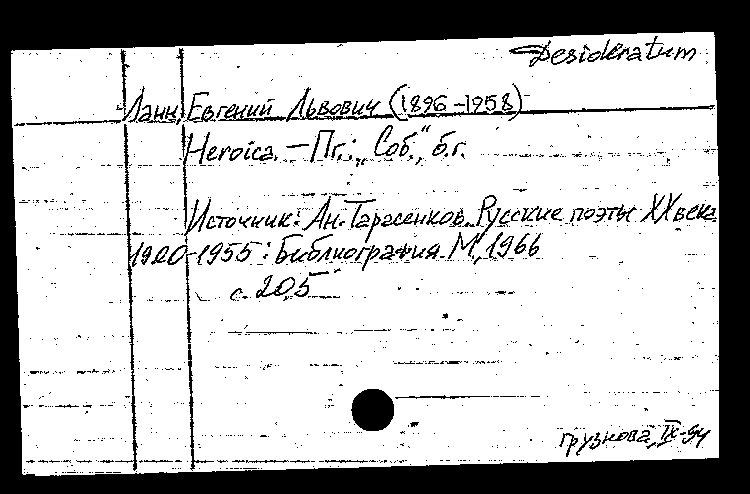 Desideratum
Ланн, Евгений Львович (1896-1958)
Heroica. - Пг.: „Соб.", б.г.
Источник: Ан. Тарасенков. Русские поэты XX века
1900-1955: Библиография. М, 1966
с. 205
Грузнова, IX-94